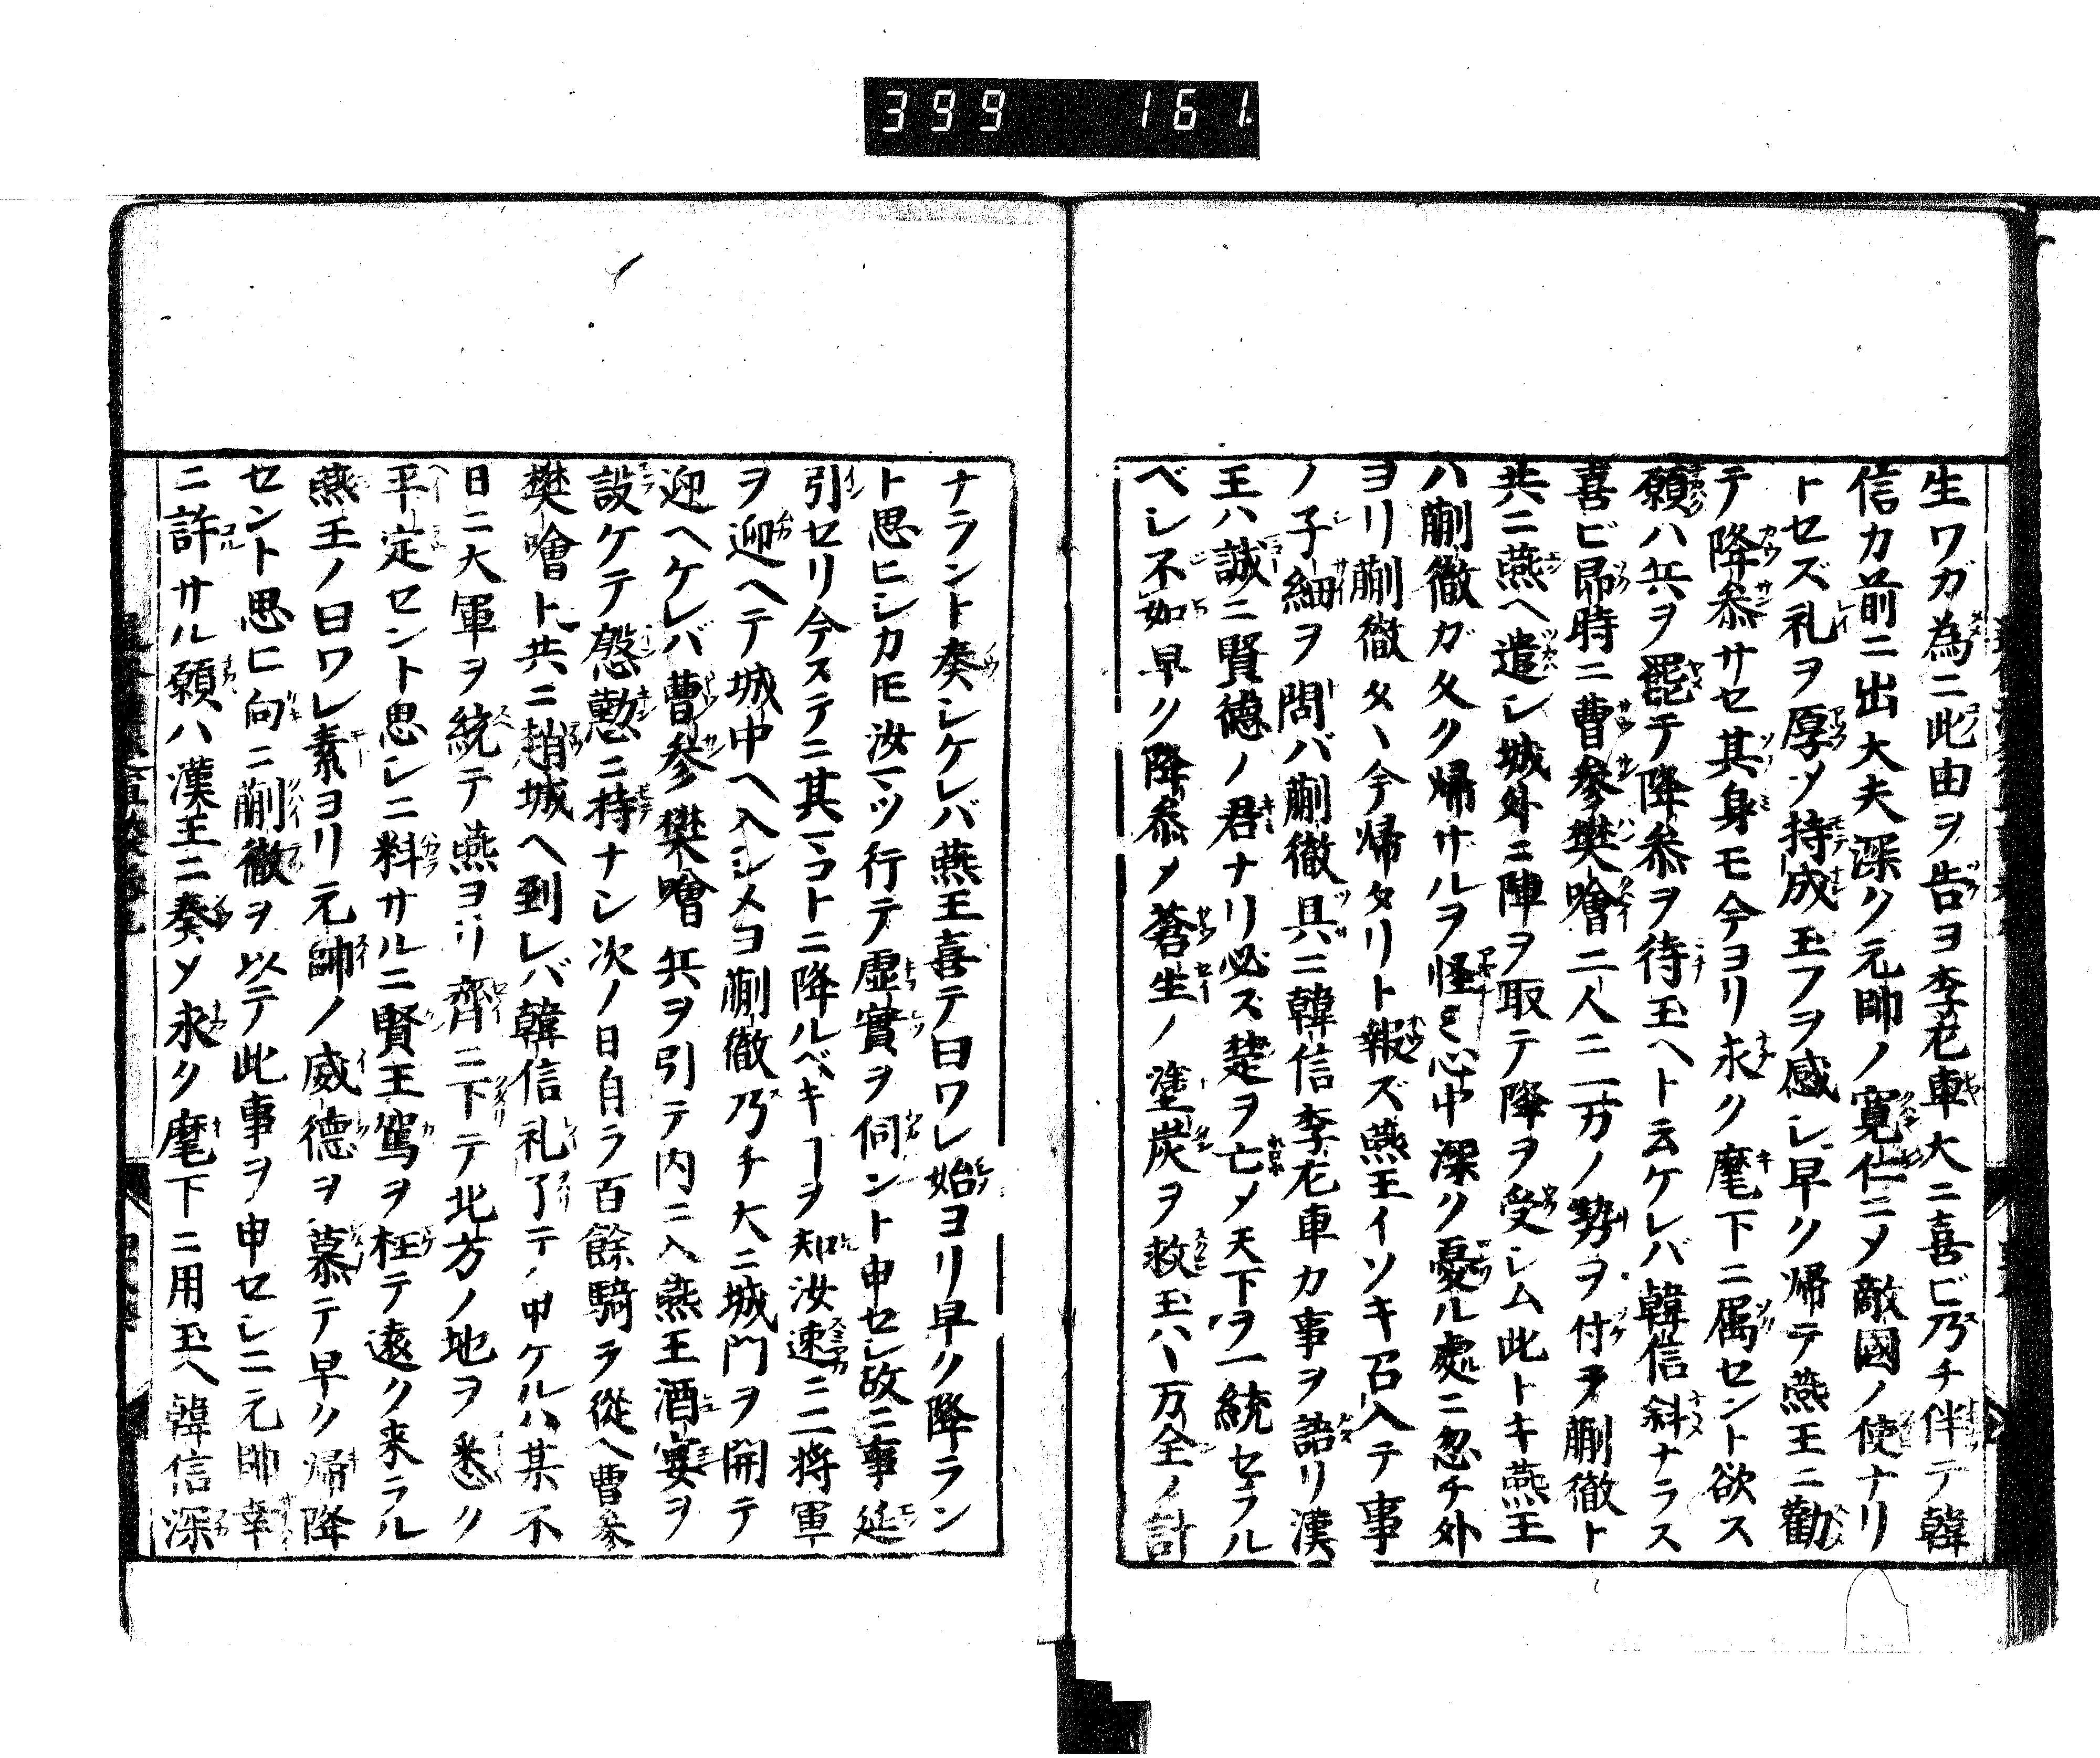 399 161.
生ワガ為ニ此由ヲ告ヨ李左車大ニ喜ビ乃チ伴テ韓
信カ前ニ出大夫深ク元帥ノ寛仁ニメ敵國ノ使ナリ
トセズ礼ヲ厚メ持成玉フヲ感シ早ク帰テ燕王ニ勸
テ降参サセ其身モ今ヨリ永ク麾下ニ属セント欲ス
願ハ兵ヲ罷テ降参ヲ待玉ヘト云ケレバ韓信斜ナラス
喜ビ即時ニ曹參樊噲二人ニ二万ノ勢ヲ付ヲ蒯徹ト
共ニ燕ヘ遣シ城外ニ陣ヲ取テ降ヲ受シム此トキ燕王
ハ蒯徹ガ久ク帰サルヲ怪ミ心中深ク憂ル處ニ忽チ外
ヨリ蒯徹タヽ今帰タリト報ズ燕王イソキ召入テ事
ノ子細ヲ問バ蒯徹具ニ韓信李左車カ事ヲ語リ漢
王ハ誠ニ賢德ノ君ナリ必ズ楚ヲ亡メ天下ヲ一統セラル
ベシ不如早ク降参メ蒼生ノ塗炭ヲ救玉ハヽ万全ノ計
ナラント奏シケレバ燕王喜テ曰ワレ始ヨリ早ク降ラン
ト思ヒシカ𪜈汝マツ行テ虚實ヲ伺ント申セシ故ニ事延
引セリ今ステニ其マコトニ降ルベキヿヲ知汝速ニ二將軍
ヲ迎ヘテ城中ヘ入シメヨ蒯徹乃チ大ニ城門ヲ開テ
迎ヘケレバ曹參樊噲兵ヲ引テ内ニ入燕王酒宴ヲ
設ケテ慇懃ニ持ナシ次ノ日自ラ百餘騎ヲ從ヘ曹參
樊噲ト共ニ趙城ヘ到レバ韓信礼了テ申ケルハ某不
日ニ大軍ヲ統テ燕ヨリ齊ニ下テ北方ノ地ヲ悉ク
平定セント思シニ料サルニ賢王駕ヲ枉テ遠ク来ラル
燕王ノ曰ワレ素ヨリ元帥ノ威德ヲ慕テ早ク帰降
セント思ヒ向ニ蒯徹ヲ以テ此事ヲ申セシニ元帥幸
ニ許サル願ハ漢王ニ奏メ永ク麾下ニ用玉ヘ韓信深